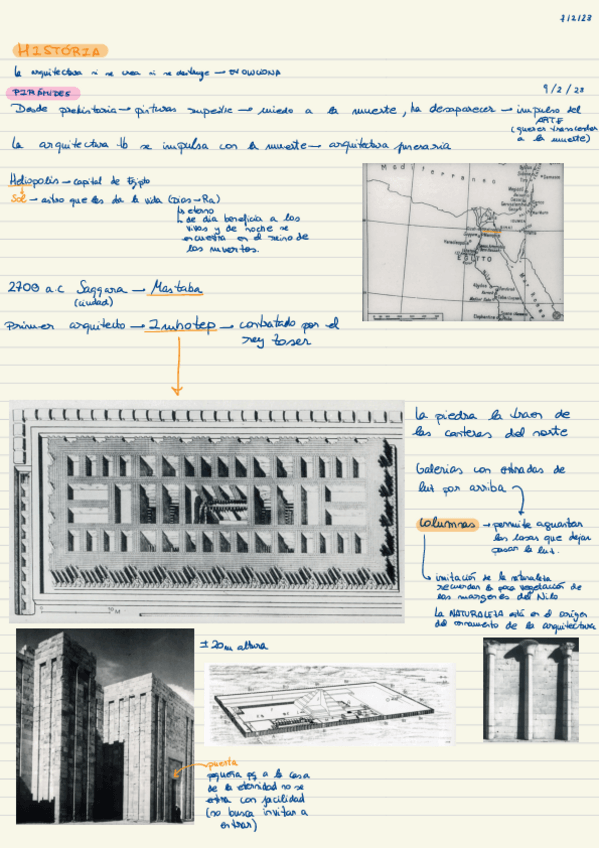 7/2/23
HISTÓRIA
la arquitectura ni se crea ni se destruye → EVOLUCIONA
PIRÁMIDES
9/2/23
Desde prehistoria → pinturas rupestre → miedo a la muerte, ha desaparecer → impulso del
ARTE
(querer trascender
a la muerte)
La arquitectura tb se impulsa con la muerte → arquitectura funeraria
Heliopolis → capital de Egipto
Sol → astro que les da la vida (Dios → Ra)
↳ eterno
↳ de día beneficia a los
vivos y de noche se
encuentra en el reino de
los muertos.
Mediterraneo
EGITTO
Mar Rosso
2700 a.C Saggara → Mastaba
(ciudad)
Primer arquitecto → Imhotep → contratado por el
rey Zoser
La piedra la traen de
las canteras del norte
Galerias con entradas de
luz por arriba
columnas → permite aguantar
las losas que dejan
pasar la luz.
imitación de la naturaleza
recuerdan la vegetación de
las margenes del Nilo
La NATURALEZA está en el origen
del ornamento de la arquitectura
± 20m altura
puerta
pequeña pq a la casa
de la eternidad no se
entra con facilidad
(no busca invitar a
entrar)